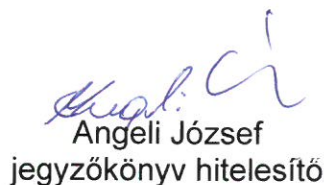 Angeli József
jegyzőkönyv hitelesítő